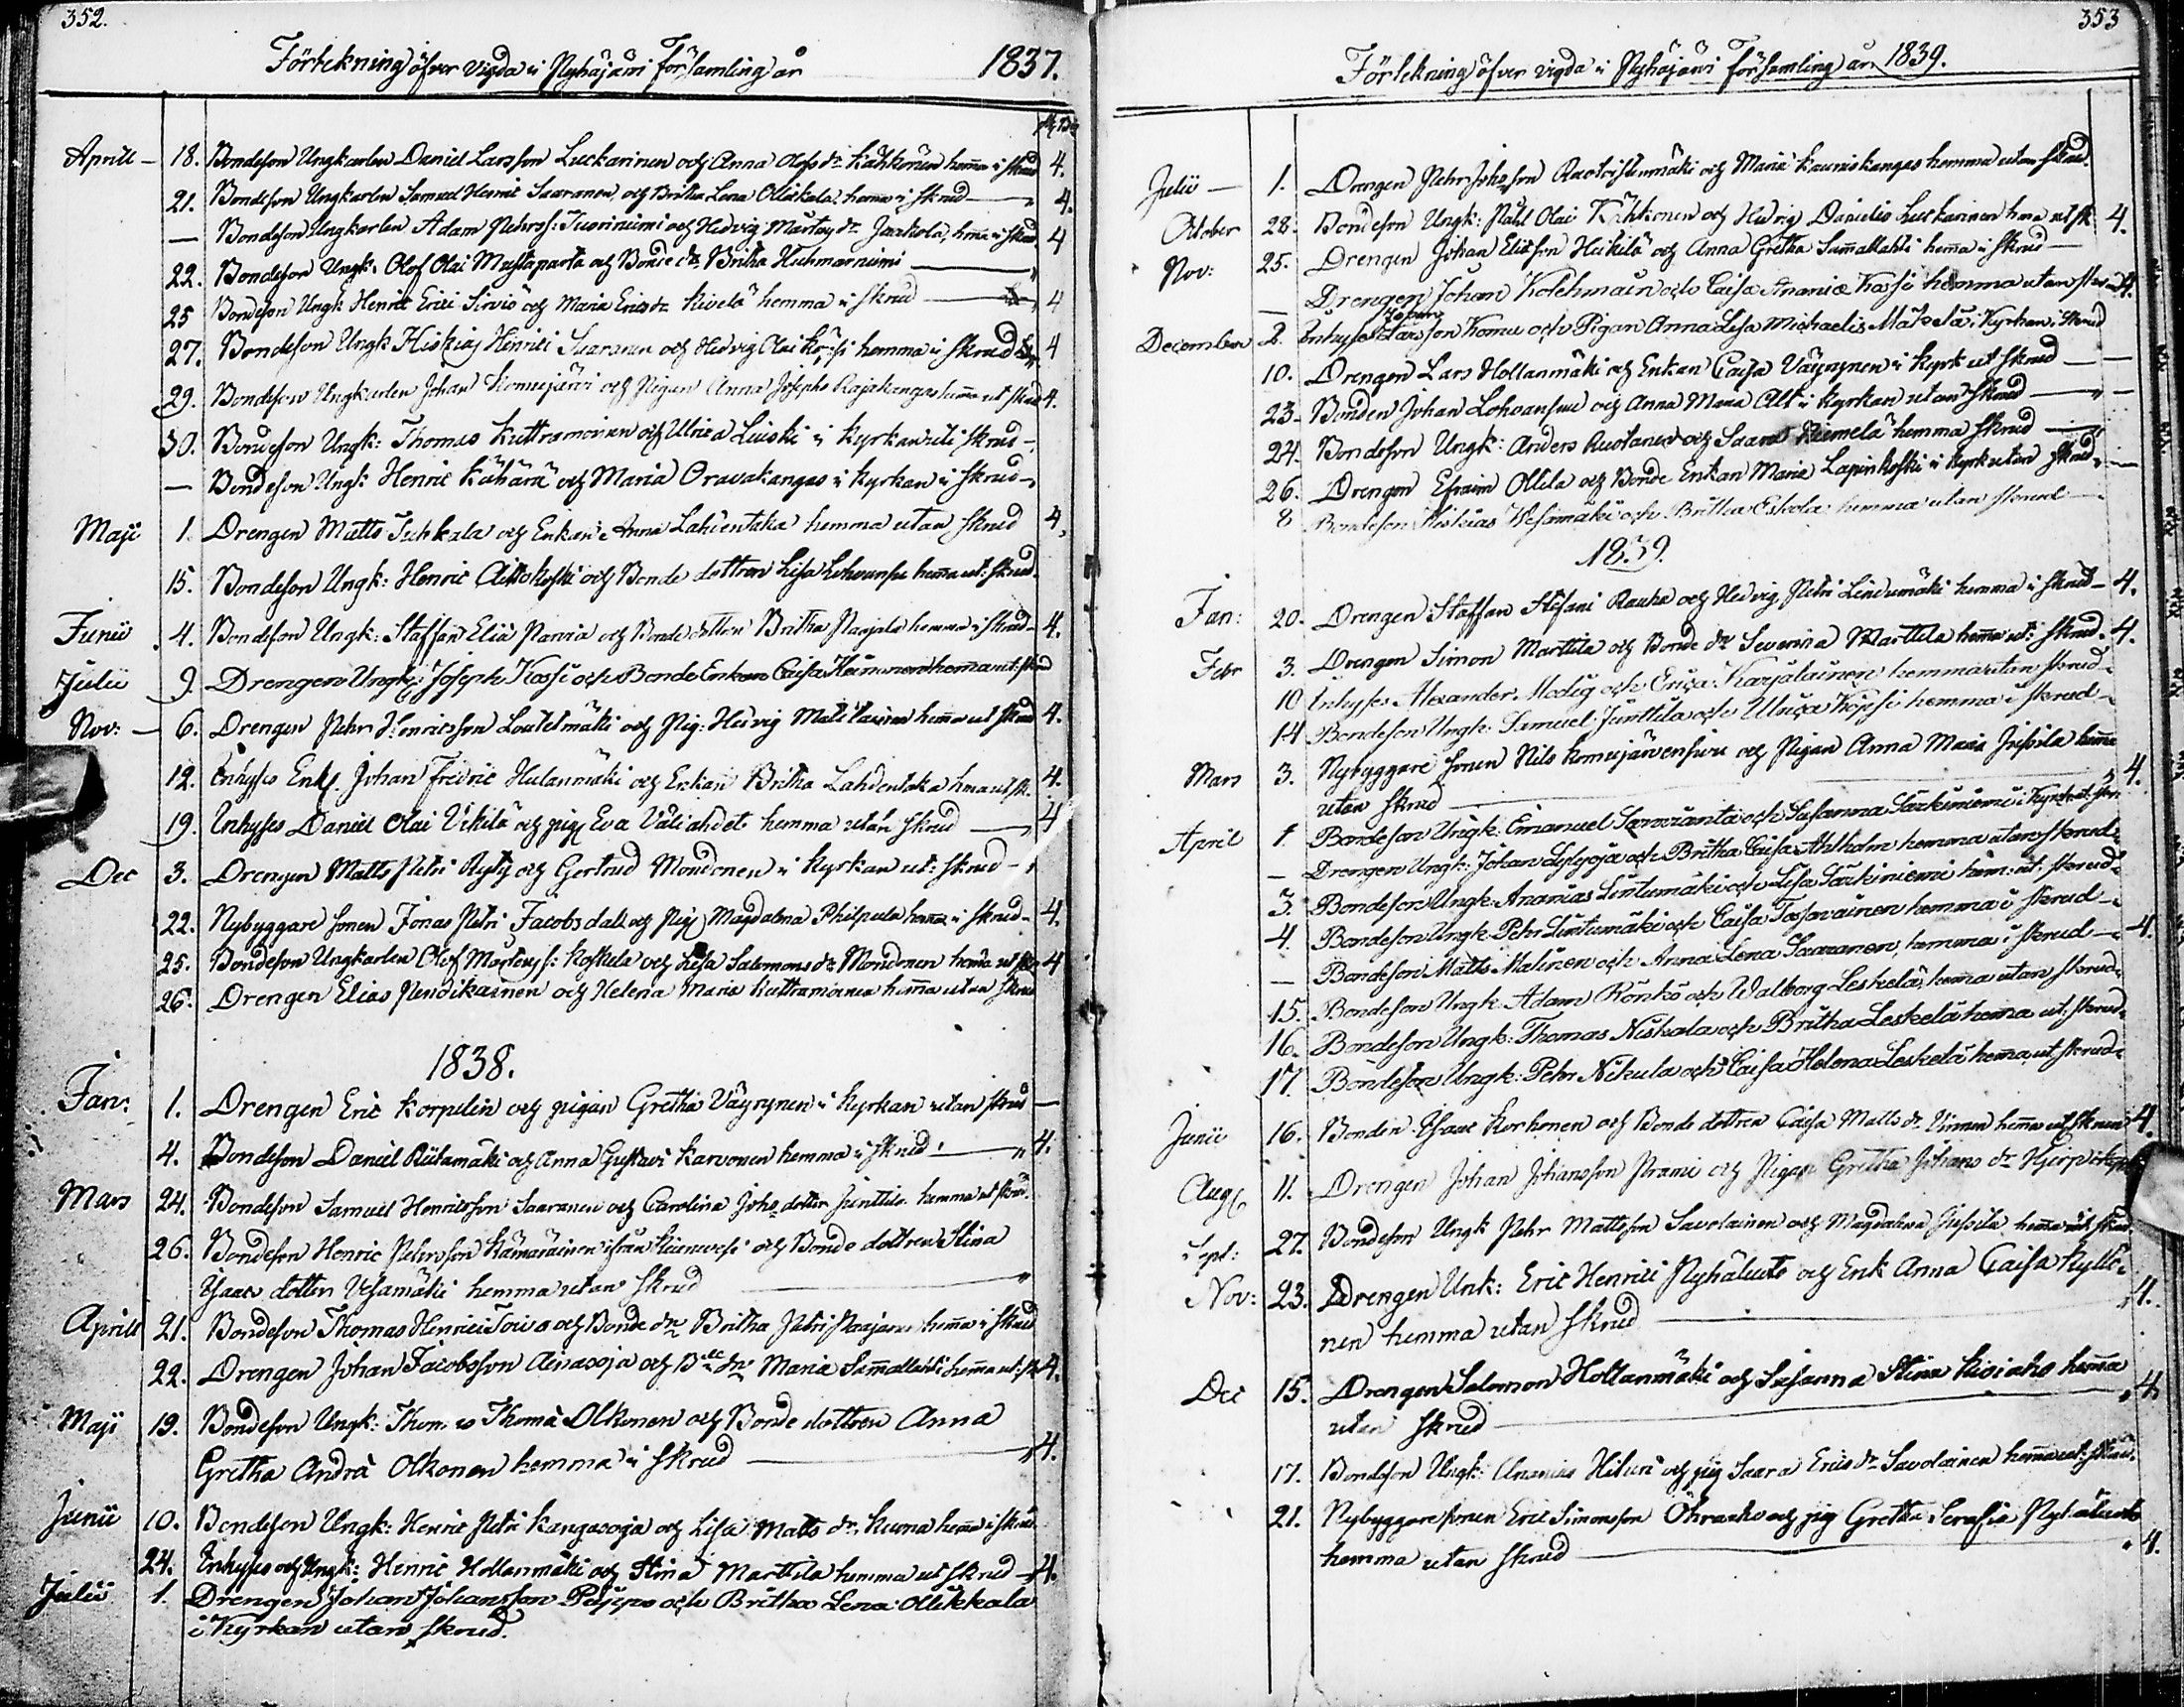 352.
Förtekning öfver vigda i Pyhäjärvi Församling år 1837.
Aprill — 18. Bondeson Ungkarlen Daniel Larsson Leckarinen och Anna Olofs dr Kähkönen hema i skrud 4.
21. Bondeson Ungkarlen Samuel Henric Saaranen och Britha Lena Ollikala hema i skrud — 4.
— Bondeson Ungkarlen Adam Pehrss: Tuoriniemi och Hedvig Mårtens dr Jaakola, hema i skrud 4
22. Bondeson Ungk: Olof Olai Mustaparta och Bonde dr Britha Huhmarniemi —
25 Bondeson Ungk: Henric Erici Sirviö och Maria Erics dr Kivelä hemma i skrud — 4
27. Bondeson Ungk: Hiskias Henrici Saaranen och Hedvig Olai hemma i skrud 4
29. Bondeson Ungkarlen Johan Komujärvi och Pigan Anna Josephs Rajakangas hema ut skrud 4.
30. Bondeson Ungk: Thomas Kuttramoinen och Ulrica Leiviski i Kyrkan uti skrud —
— Bondeson Ungk: Henric Kähärä och Maria Oravakangas i Kyrkan i skrud —
Maji 1. Drengen Matts Juhkala och Enkan Anna Lahdentaka hemma utan skrud 4.
15. Bondeson Ungk: Henric Aittokoski och Bonde dottren Lisa Lohvansuu hema ut: skrud.
Junii 4. Bondeson Ungk: Staffan Eliæ Parvia och Bonde dottren Britha Paajala hemma i skrud — 4.
Julii 9. Drengen Ungk: Joseph Kossi och Bonde Enkan Caisa Hänninen hema ut: skrud
Nov: — 6. Drengen Pehr Henricsson Loutelmäki och Pig: Hedvig Matilainen hema ut skrud 4.
12. Inhyses Enkl. Johan Fredric Hulanmäki och Enkan Britha Lahdentaka hma ut sk. 4.
19. Inhyses Daniel Olai Vikilä och pig Eva Väliahdet hemma utan skrud — 4
Dec 3. Drengen Matts Petri Rytty och Gertrud Mondonen i Kyrkan ut: skrud —
22. Nybyggare sonen Jonas Petri Jacobsdal och Pig Magdalena Philpula hema i skrud — 4.
25. Bondeson Ungkarlen Olof Mårtens: Koskela och Lisa Salomons dr Mondonen hema ut sk 4
26. Drengen Elias Pendikainen och Helena Maria Kuttramoinen hema utan skrud
1838.
Jan: 1. Drengen Eric Korpelin och pigan Gretha Väyrynen i Kyrkan utan skrud —
4. Bondeson Daniel Riitamäki och Anna Gustavi Karvonen hemma i skrud — 4.
Mars 24. Bondeson Samuel Henricsson Saaranen och Carolina Johs dotter Junttila hemma ut skrud.
26. Bondeson Henric Pehrsson Kämäräinen ifrån Kiuruvesi och Bonde dottren Stina
Isaacs dotter Vesamäki hemma utan skrud —
Aprill 21. Bondeson Thomas Henrici Toiva och Bonde dr Britha Petri Paajanen hema i skrud
22. Drengen Johan Jacobsson Ainasoja och Bde dr Maria Samallahti hema ut: sk 4.
Maji 19. Bondeson Ungk: Thomas Thomæ Olkonen och Bonde dottren Anna
Gretha Andræ Olkonen hemma i skrud — 4.
Junii 10. Bondeson Ungk: Henric Petri Kangasoja och Lisa Matts dr Kurna hema i skrud
24. Inhyses och Ungk: Henric Hollanmäki och Stina Marttila hemma ut skrud — 4.
Julii 1. Drengen Johan Johansson Piippo och Britha Lena Ollikkala
i Kyrkan utan skrud.
353
Förtekning öfver vigda i Pyhäjärvi Församling år 1839.
Julii — 1. Drengen Pehr Johsson Ruotoistenmäki och Maria Kauniskangas hemma utan skrud.
October 28. Bondeson Ungk: Påhl Olai Kähkönen och Hedvig Danielis Luckarinen hma ut sk 4.
Nov: 25. Drengen Johan Eliæson Heikilä och Anna Gretha Samallahti hema i skrud —
— Drengen Johan Kolehmain och Caisa Ananiæ Kossi hemma utan skrud 4.
December 2. Inhyses Johan Larsson Komu och Pigan Anna Lisa Michaelis Mäkelä i Kyrkan i skrud
10. Drengen Lars Hollanmäki och Enkan Caisa Väyrynen i Kyrk ut skrud —
23. Bonden Johan Lohvansuu och Anna Maria Alt i Kyrkan utan skrud —
24. Bondeson Ungk: Anders Ruotanen och Saara Niemelä hemma skrud —
26. Drengen Efraim Ollila och Bonde Enkan Maria Lapinkoski i Kyrk utan skrud —
8 Bondeson Hiskias Vesamäki och Britha Eskola hemma utan skrud —
1839.
Jan: 20. Drengen Staffan Stefani Rauha och Hedvig Petri Lindumäki hemma i skrud — 4.
Febr 3. Drengen Simon Marttila och Bonde dr Severina Marttila hema ut: skrud. 4.
10 Inhyses Alexander Modig och Erica Karjalainen hemma utan skrud
14 Bondeson Ungk: Samuel Junttila och Ulrica Kossi hemma i skrud —
Mars 3. Nybyggare sonen Nils Komujärvensivu och Pigan Anna Maria Jussila hema
utan skrud — 4.
April 1. Bondeson Ungk: Emanuel Savoranta och Susanna Särkiniemi i Kyrk ut. skr
— Drengen Ungk: Johan Lylyoja och Britha Caisa Ahlholm hemma utan skrud
3. Bondeson Ungk: Ananias Lintumäki och Lisa Särkiniemi hem: ut. skrud
4. Bondeson Ungk: Pehr Lintumäki och Caisa Tossavainen hemma i skrud —
— Bondeson Matts Malinen och Anna Lena Saaranen, hemma i skrud — 4.
15. Bondeson Ungk: Adam Rönkö och Walborg Leskelä, hema utan skrud
16. Bondeson Ungk: Thomas Niskala och Britha Leskelä hema ut: skrud
17. Bondeson Ungk: Pehr Nikula och Caisa Helena Leskelä hema, ut skrud
Junii 16. Bonden Isaac Korhonen och Bonde dottren Caisa Matts dr Vinnen hema ut skrud 4.
Aug 11. Drengen Johan Johansson Prami och Pigan Gretha Johans dr Hjerpe
Sept: 27. Bondeson Ungk Pehr Mattsson Savolainen och Magdalena Jussila hema ut skrud
Nov: 23. Drengen Unk: Eric Henrici Pyhäluoto och Enk Anna Caisa Kyllö-
nen hemma utan skrud — 4.
Dec 15. Drengen Salomon Holtanmäki och Susanna Stina Kiviaho hema
utan skrud — 4
17. Bondeson Ungk: Ananias Hiluri och pig Saara Erics dr Savolainen hema ut: skrud.
21. Nybyggare sonen Eric Simonsson Ohraaho och pig Gretha Serafia Pyhäluoto
hemma utan skrud — 4.